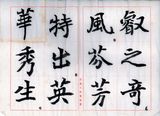 叡之奇
風芬芳
特出英
華秀生